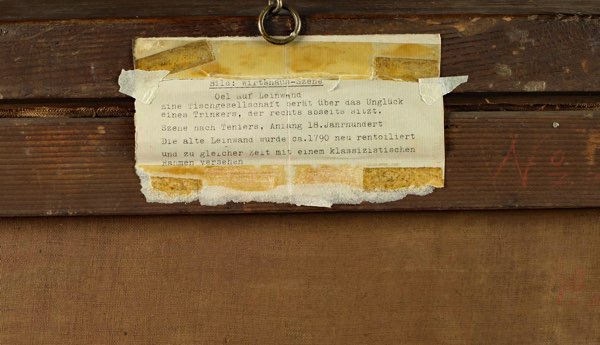 Bild: Wirtshaus-Szene
Oel auf Leinwand
Eine Tischgesellschaft berät über das Unglück
eines Trinkers, der rechts abseits sitzt.
Szene nach Teniers, Anfang 18.Jahrhundert
Die alte Leinwand wurde ca.1790 neu rentoiliert
und zu gleicher Zeit mit einem klassizistischen
Rahmen versehen